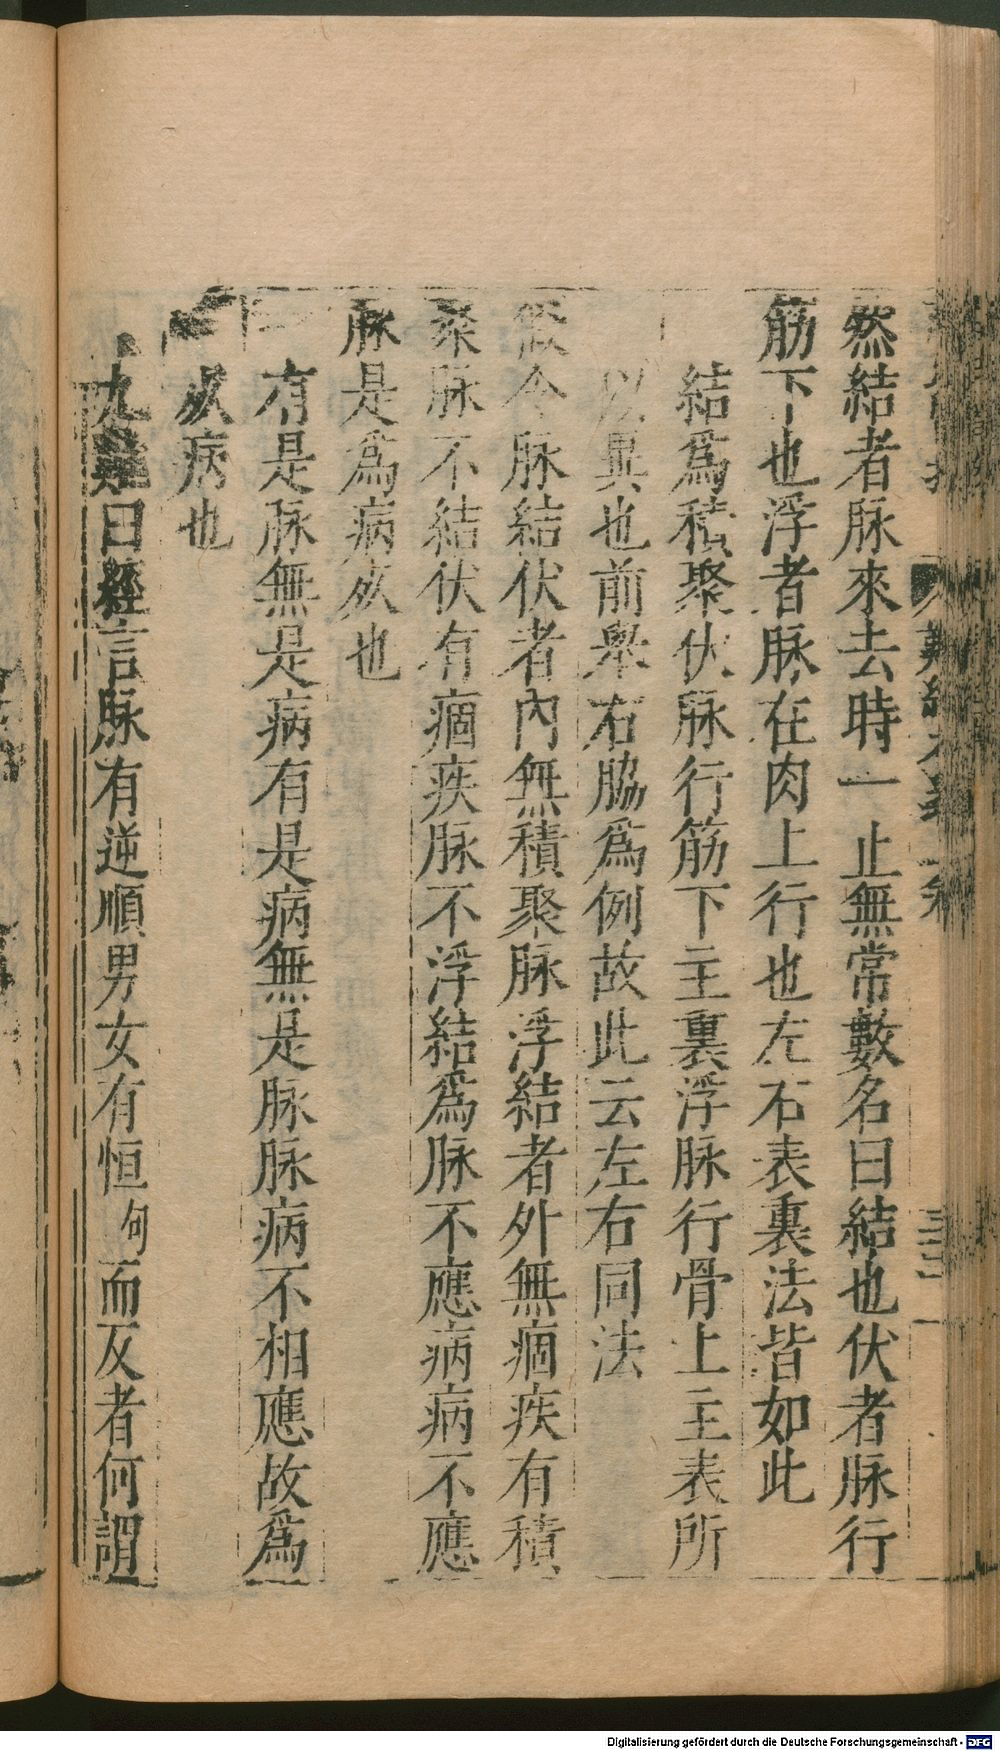 然結者脉來去時一止無常數名曰結也伏者脉行
筋下也浮者脉在肉上行也左右表裏法皆如此
結爲積聚伏脉行筋下主裏浮脉行骨上主表所
以異也前舉右脇爲例故此云左右同法
假令脉結伏者內無積聚脉浮結者外無痼疾有積
聚脉不結伏有痼疾脉不浮結爲脉不應病病不應
脉是爲病死也
有是脉無是病有是病無是脉脉病不相應故爲
死病也
九難曰經言脉有逆順男女有恒句而反者何謂
Digitalisierung gefördert durch die Deutsche Forschungsgemeinschaft - DFG